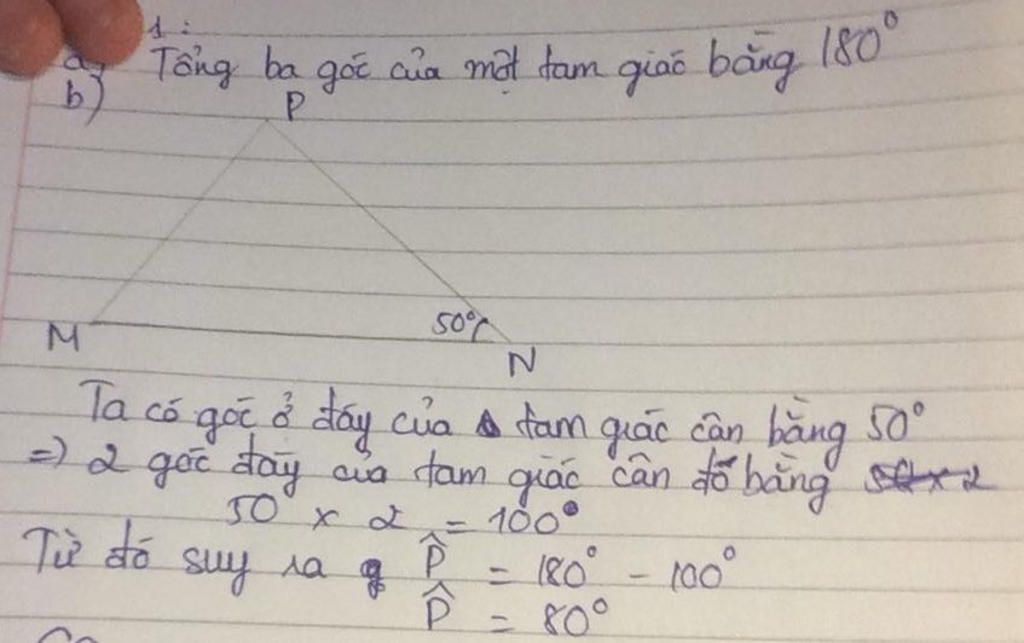 1:
a, Tổng ba góc của một tam giác bằng 180°
b)
P
50°
M
N
Ta có góc ở đáy của tam giác cân bằng 50°
=) 2 góc đáy của tam giác cân đó bằng
50 x 2 = 100°
Từ đó suy ra P̂ = 180° - 100°
P̂ = 80°